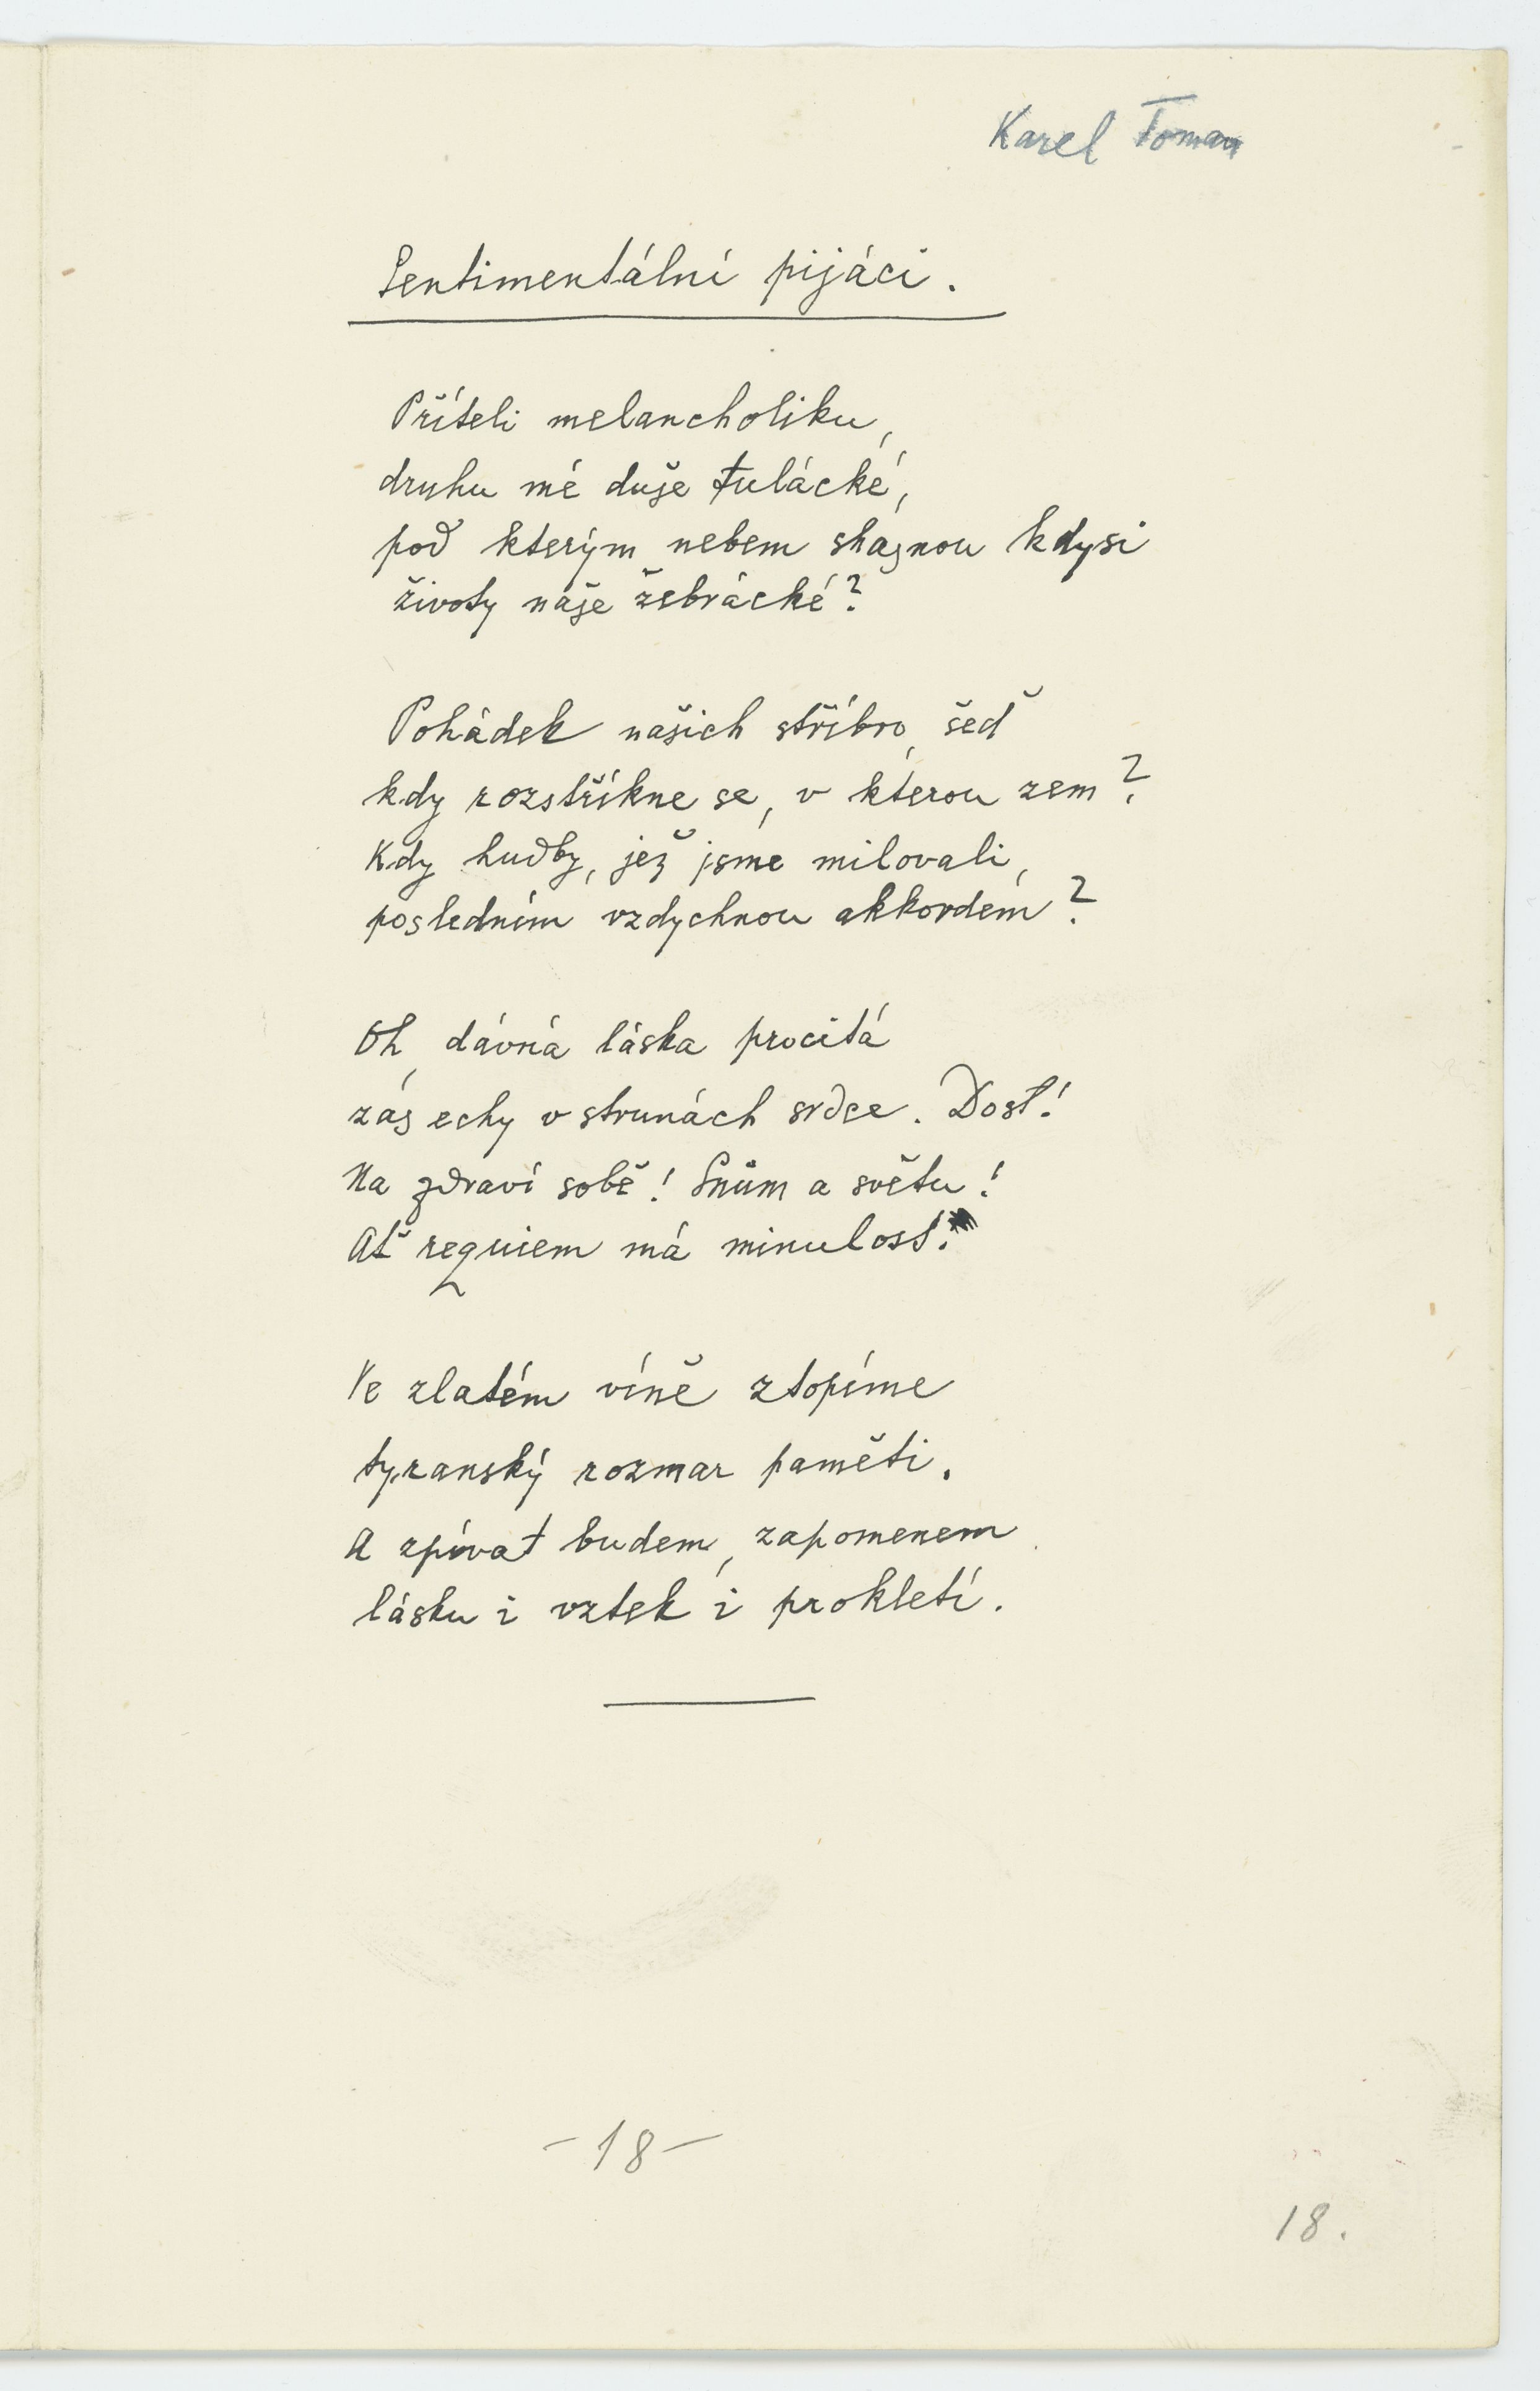 Karel Toman
Sentimentální pijáci.
Příteli melancholiku,
druhu mé duše tulácké,
pod kterým nebem shasnou kdysi
životy naše žebrácké?
Pohádek našich stříbro, šeď
kdy rozstříkne se, v kterou zem?
Kdy hudby, jež jsme milovali,
posledním vzdychnou akkordem?
Oh, dávná láska procitá
zas echy v strunách srdce. Dosť!
Na zdraví sobě! Snům a světu!
Ať requiem má minulosť.
Ve zlatém víně ztopíme
tyranský rozmar paměti.
A zpívat budem, zapomenem
lásku i vztek i prokletí.
- 18 -
18.